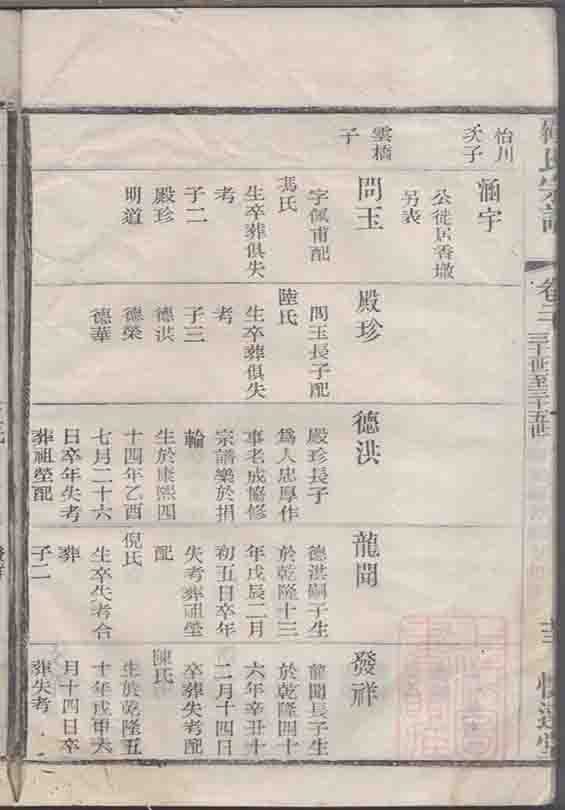 氏宗譜
卷三
三十一世至三十五世
怡川
次子
涵宇
公徙居香墩
另表
雲橋
子
問玉
字佩甫配
馮氏
生卒葬俱失
考
子二
殿珍
明道
殿珍
問玉長子配
陸氏
生卒葬俱失
考
子三
德洪
德榮
德華
德洪
殿珍長子
為人忠厚作
事老成協修
宗譜樂於捐
輸
生於康熙四
十四年乙酉
七月二十六
日卒年失考
葬祖塋配
倪氏
生卒失考合
葬
子二
龍聞
德洪嗣子生
於乾隆十三
年戊辰二月
初五日卒年
失考葬祖塋
配
陳氏
生於乾隆五
十年戊申六
月十四日卒
葬失考
發祥
龍聞長子生
於乾隆四十
六年辛丑十
二月十四日
卒葬失考配